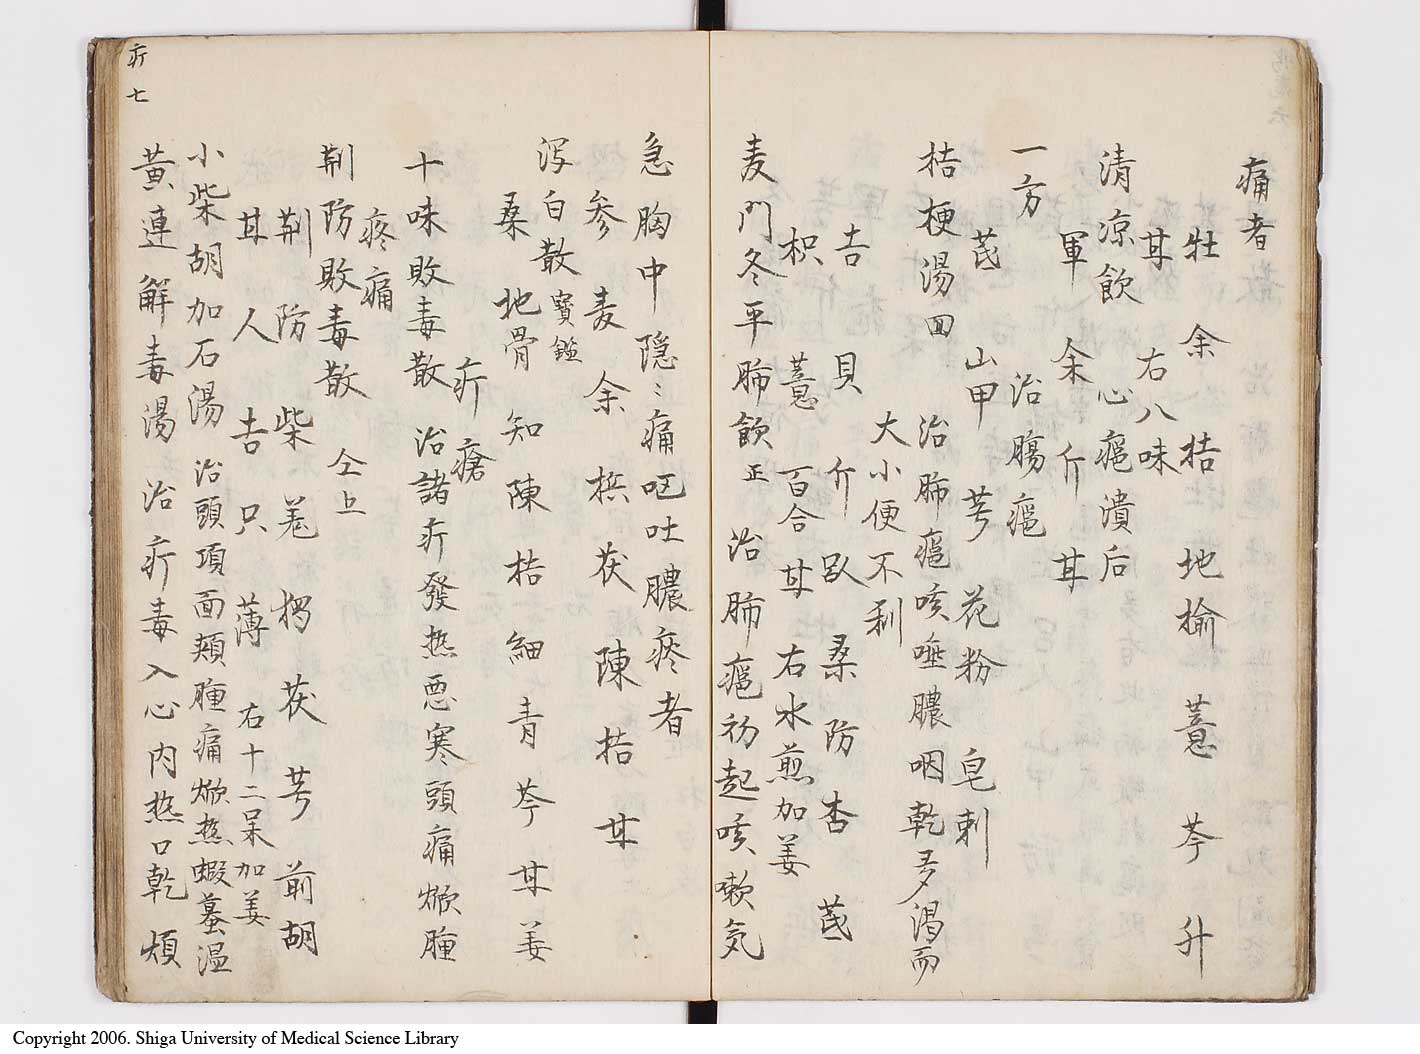 痛者
牡 余 桔 地 榆 薏 芩 升
甘 右八味
清凉飲 心癰潰后
軍 余 斤 甘
一方 治腸癰
芪 山甲 芎 花粉 皂刺
桔梗湯 回 治肺癰咳唾膿咽乾多渇而
大小便不利
吉 貝 斤 趴 桑 防 杏 芪
枳 薏 百合 甘 右水煎加姜
麦門冬平肺飲 正 治肺癰初起咳嗽気
急胸中隠〻痛呕吐膿痰者
参 麦 余 槟 茯 陳 桔 甘
泻白散 寳鑑
桑 地骨 知 陳 桔 細 青 芩 甘 姜
疔 瘡
十味敗毒散 治諸疔發热悪寒頭痛焮腫
疼痛
荆防敗毒散 仝上
荆 防 柴 羗 栲 茯 芎 前胡
甘 人 吉 只 薄 右十二味加姜
小柴胡加石湯 治頭項面頬腫痛焮热蝦蟇温
黄連解毒湯 治疔毒入心内热口乾煩
疔 七
Copyright 2006. Shiga University of Medical Science Library